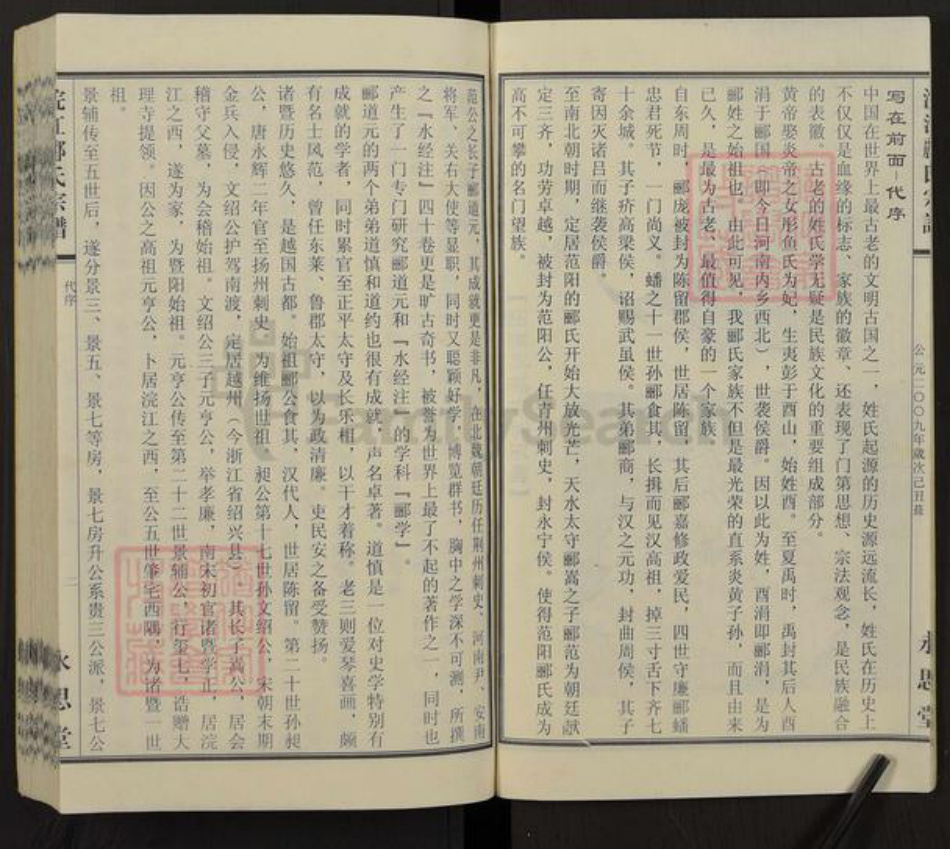 写在前面–代序
中国在世界上最古老的文明古国之一，姓氏起源的历史源远流长，姓氏在历史上
不仅仅是血缘的标志、家族的徽章、还表现了门第思想、宗法观念，是民族融合
的表徽。古老的姓氏学无疑是民族文化的重要组成部分。
黄帝娶炎帝之女彤鱼氏为妃，生夷彭于酉山，始姓酉。至夏禹时，禹封其后人酉
涓于郦国（即今日河南内乡西北），世袭侯爵。因以此为姓，酉涓即郦涓，是为
郦姓之始祖也，由此可见，我郦氏家族不但是最光荣的直系炎黄子孙，而且由来
已久，是最为古老、最值得自豪的一个家族。
自东周时，郦庞被封为陈留郡侯，世居陈留，其后郦嘉修政爱民，四世守廉郦蟠
忠君死节，一门尚义。蟠之十一世孙郦食其，长揖而见汉高祖，掉三寸舌下齐七
十余城。其子疥高梁侯，诏赐武虽侯。其弟郦商，与汉之元功，封曲周侯，其子
寄因灭诸吕而继袭侯爵。
至南北朝时期，定居范阳的郦氏开始大放光芒，天水太守郦嵩之子郦范为朝廷献
定三齐，功劳卓越，被封为范阳公，任青州刺史，封永宁侯。使得范阳郦氏成为
高不可攀的名门望族。
公元二〇〇九年歲次己丑葺
永思堂
范公之长子郦道元，其成就更是非凡，在北魏朝廷历任荆州刺史、河南尹、安南
将军、关右大使等显职，同时又聪颖好学，博览群书，胸中之学深不可测，所撰
之『水经注』四十卷更是旷古奇书，被誉为世界上最了不起的著作之一，同时也
产生了一门专门研究郦道元和『水经注』的学科『郦学』。
郦道元的两个弟弟道慎和道约也很有成就，声名卓著。道慎是一位对史学特别有
成就的学者，同时累官至正平太守及长乐相，以干才着称。老三则爱琴喜画，颇
有名士风范，曾任东莱、鲁郡太守，以为政清廉。吏民安之备受赞扬。
诸暨历史悠久，是越国古都。始祖郦公食其，汉代人，世居陈留。第二十世孙昶
公，唐永辉二年官至扬州刺史，为维扬世祖，昶公第十七世孙文绍公，宋朝末期
金兵入侵，文绍公护驾南渡，定居越州（今浙江省绍兴县），其长子高公，居会
稽守父墓，为会稽始祖。文绍公三子元亨公，举孝廉，南宋初官诸暨学正，居浣
江之西，遂为家，为暨阳始祖。元亨公传至第二十二世景辅公，行玺七，诰赠大
理寺提领。因公之高祖元亨公，卜居浣江之西，至公五世肇宅西隅，为诸暨一世
祖。
景辅传至五世后，遂分景三、景五、景七等房，景七房升公系贵三公派，景七公
浣江郦氏宗谱
代序
永思堂
FamilySearch